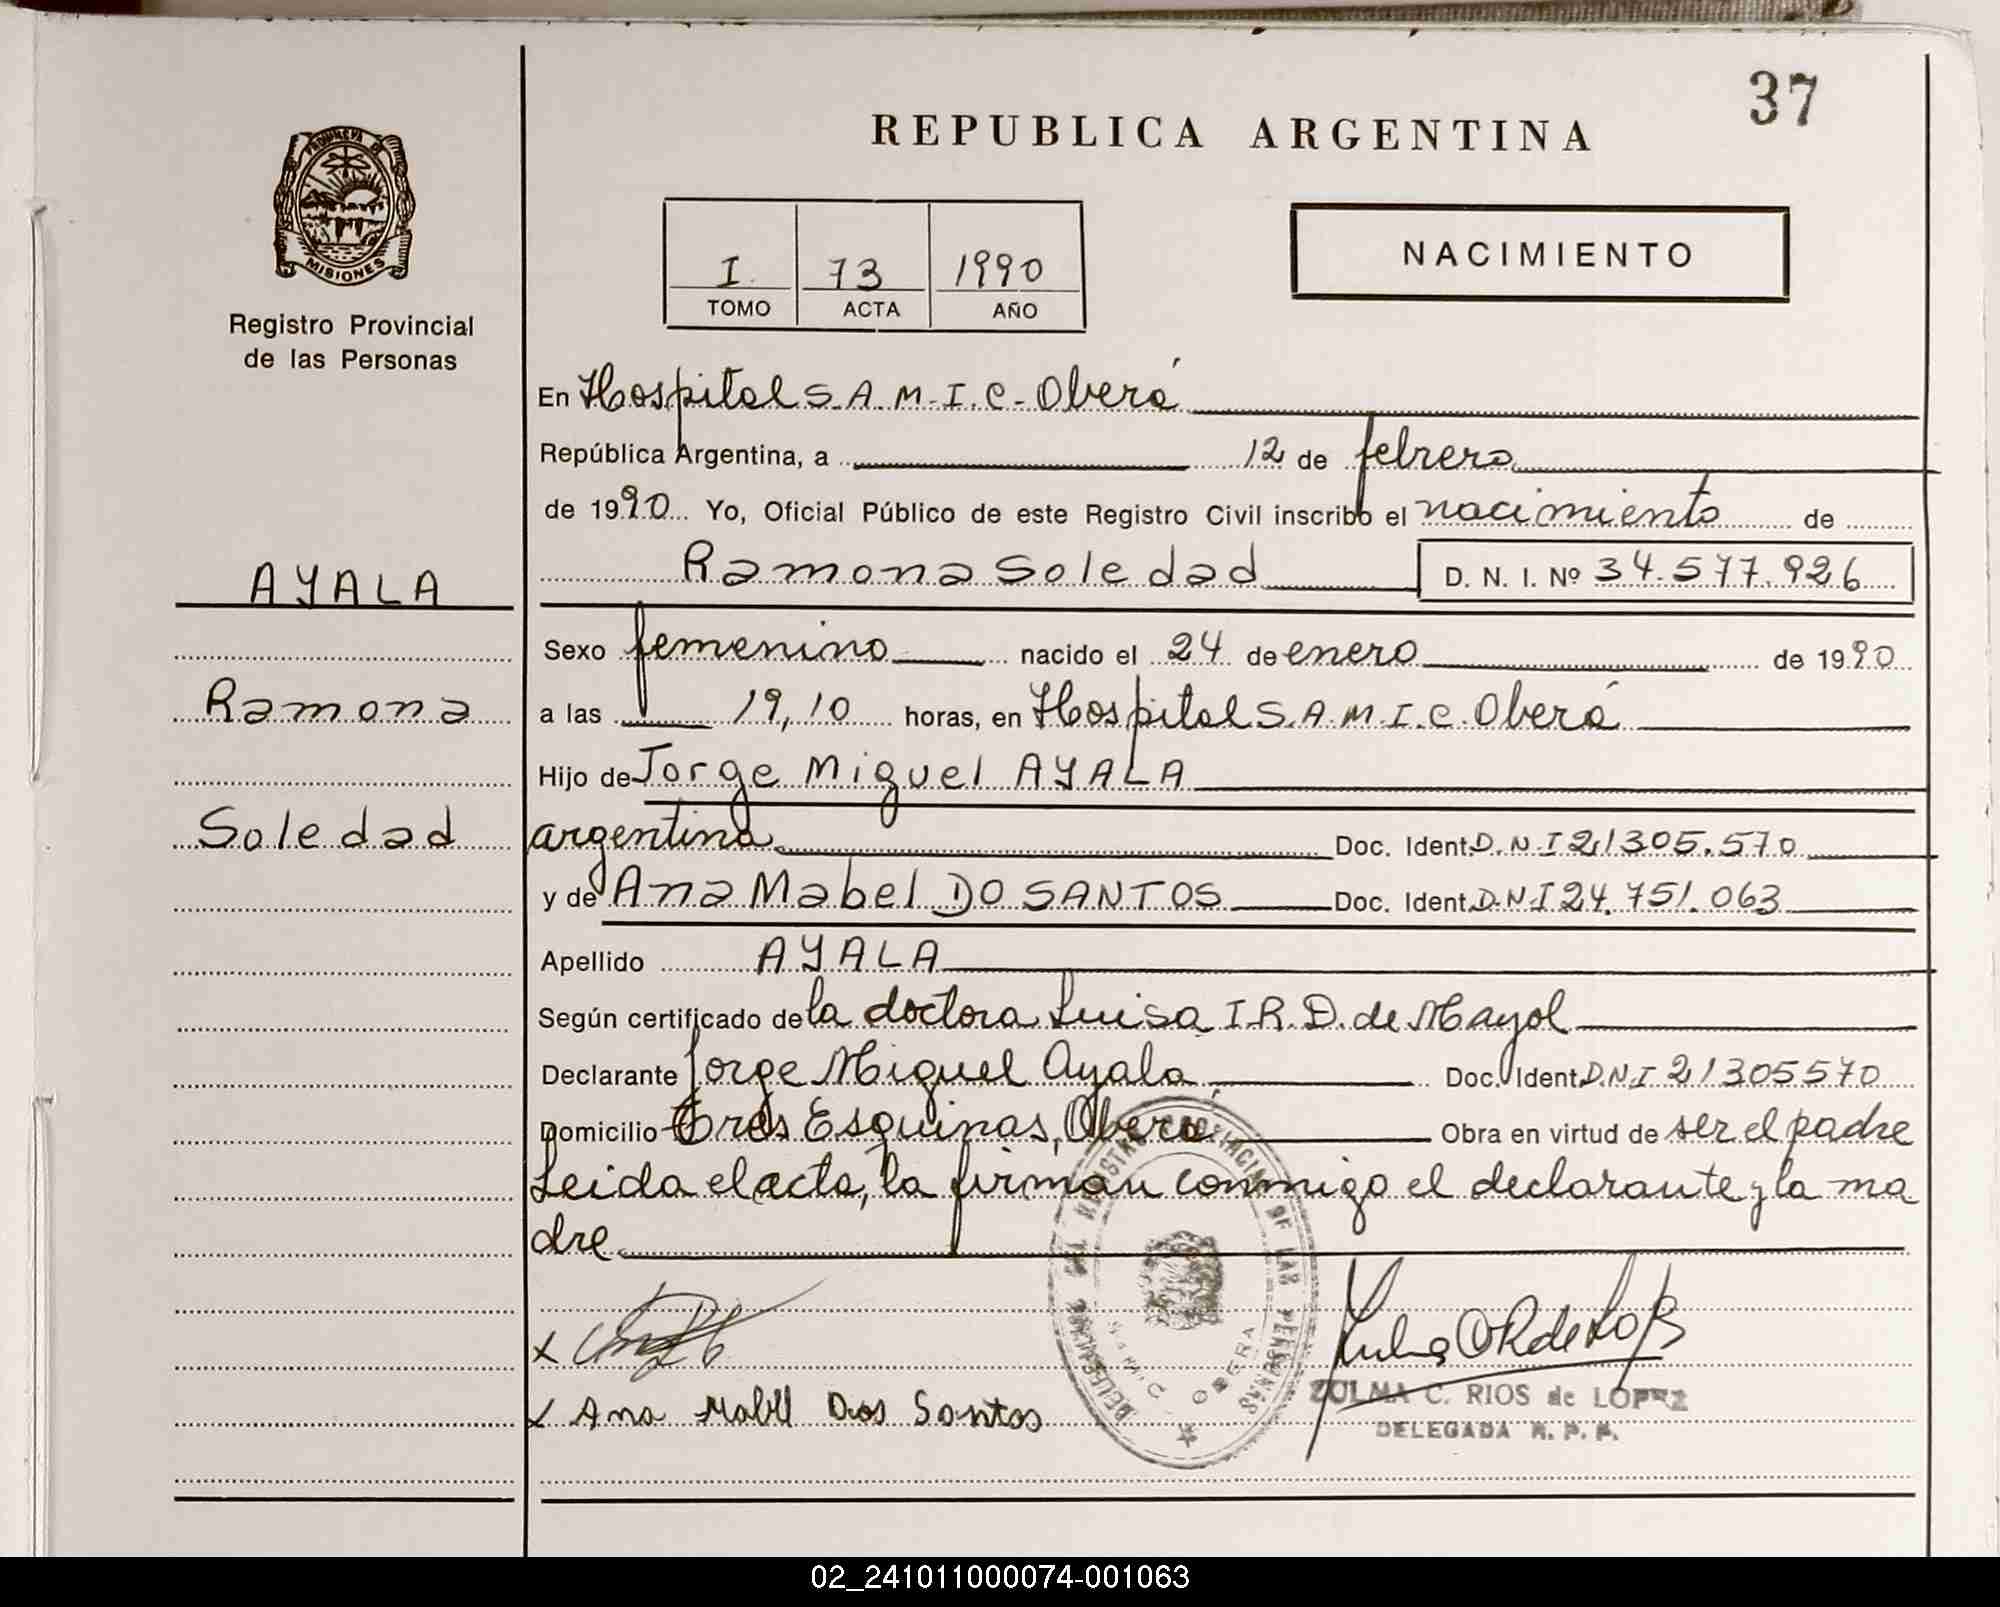 37
REPUBLICA ARGENTINA
PROVINCIA DE
MISIONES
Registro Provincial
de las Personas
I 73 1990
TOMO ACTA AÑO
NACIMIENTO
En Hospital S.A.M.I.C. Oberá
República Argentina, a 12 de febrero
de 1990 Yo, Oficial Público de este Registro Civil inscribo el nacimiento de
AYALA
Ramona Soledad D. N. I. Nº 34.577.926
Sexo femenino nacido el 24 de enero de 1990
Ramona
a las 19,10 horas, en Hospital S.A.M.I.C. Oberá
Hijo de Jorge Miguel AYALA
Soledad
argentina Doc. Ident. D.N.I 21305.570
y de Ana Mabel DO SANTOS Doc. Ident. D.N.I 24.751.063
Apellido AYALA
Según certificado de la doctora Luisa I.R.D. de Mayol
Declarante Jorge Miguel Ayala Doc. Ident. D.N.I 21305570
Domicilio Tres Esquinas, Oberá. Obra en virtud de ser el padre
Leida el acta, la firman conmigo el declarante y la ma
dre
x
x Ana Mabel Dos Santos
REGISTRO PROVINCIAL DE LAS PERSONAS
OBERA
ZULMA C. RIOS de LOPEZ
DELEGADA R. P. P.
02_241011000074-001063